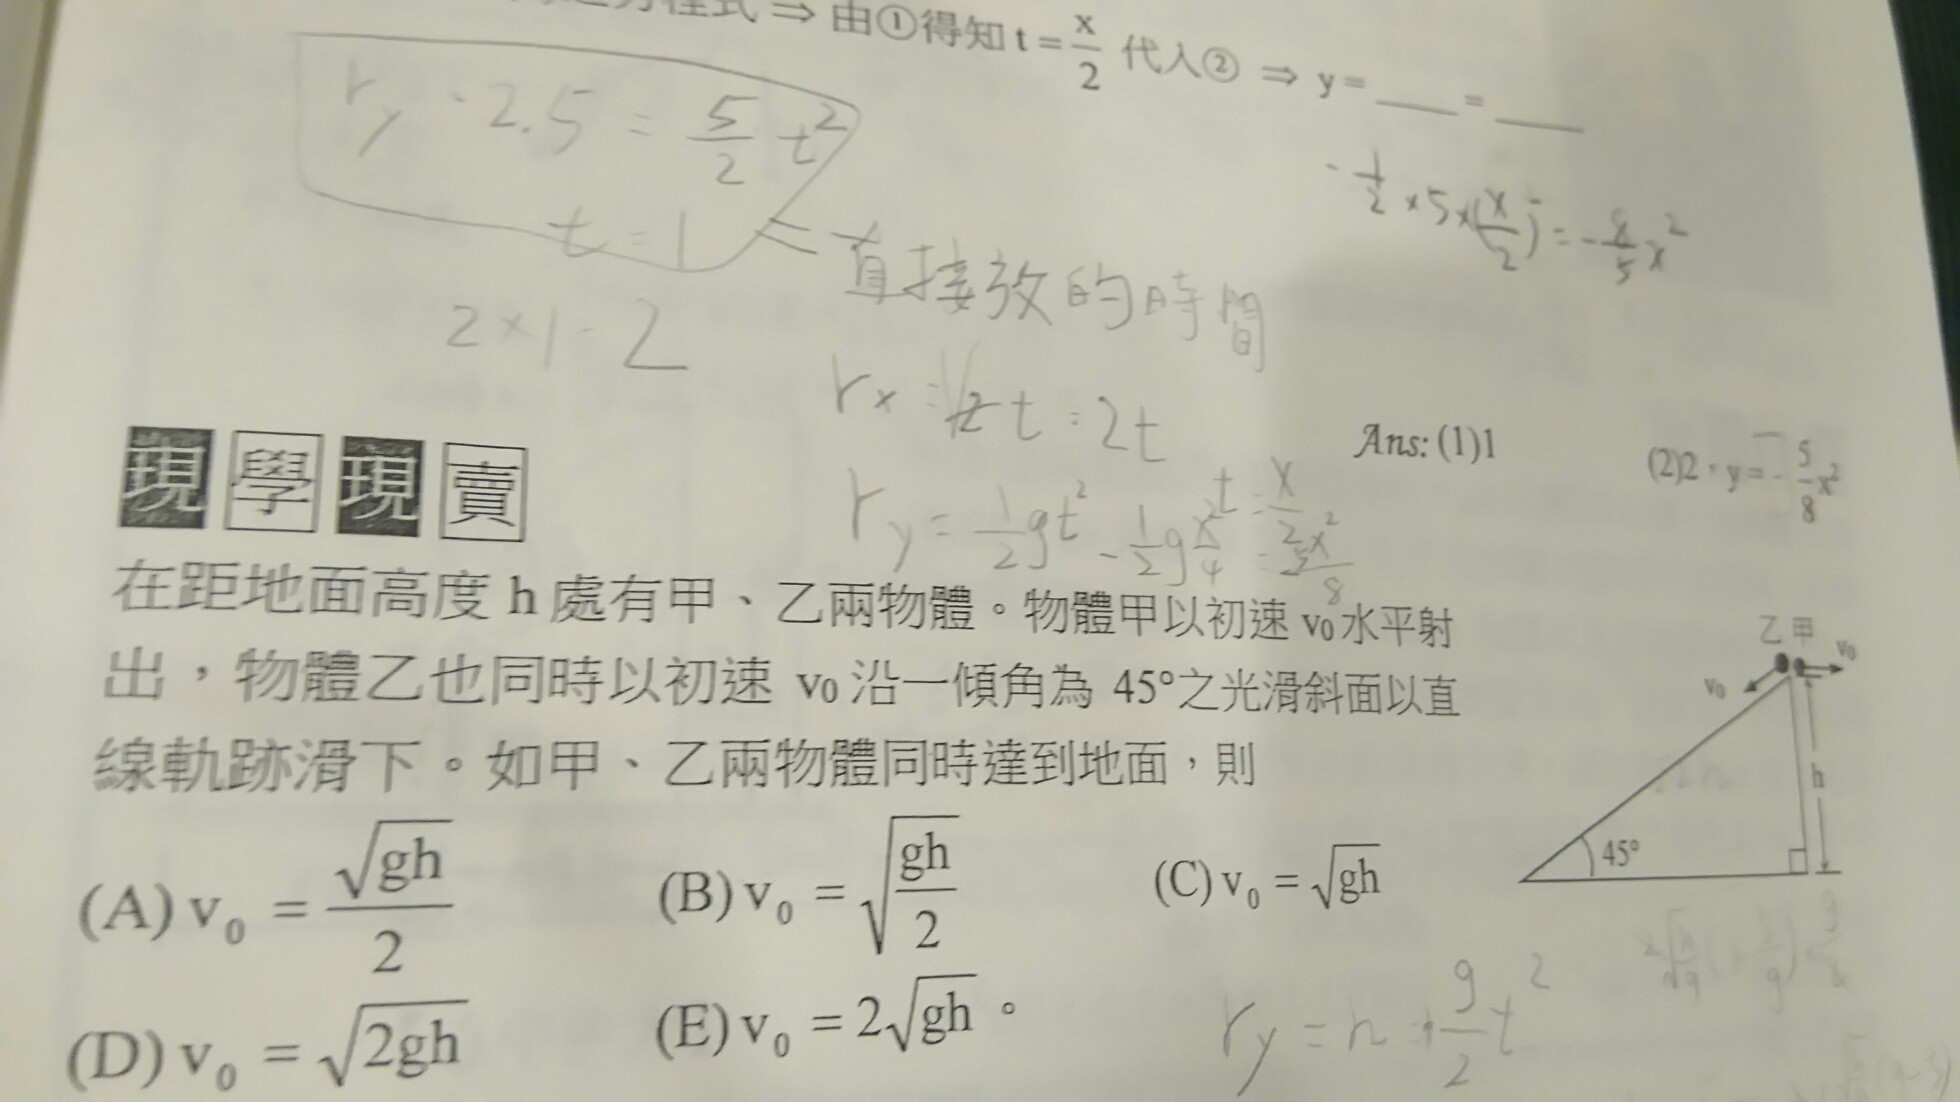 方程式 ⇒ 由①得知 t = x/2 代入② ⇒ y = ____ = ____
r_y = 2.5 = 5/2 t²
t = 1 ⇐ 直接放的時間
-1/2 × 5 × (x/2)² = -8/5 x²
2×1=2
r_x = t = 2t
Ans: (1)1 (2)2,y = -5/8 x²
t = x/2
r_y = 1/2 gt² - 1/2 g x²/4 = 5x²/8
現學現賣
在距地面高度 h 處有甲、乙兩物體。物體甲以初速 v₀ 水平射
出,物體乙也同時以初速 v₀ 沿一傾角為 45°之光滑斜面以直
線軌跡滑下。如甲、乙兩物體同時達到地面,則
乙 甲
v₀
v₀
h
45°
(A) v₀ = √gh/2 (B) v₀ = √(gh/2) (C) v₀ = √gh
(D) v₀ = √2gh (E) v₀ = 2√gh。
r_y = h + g/2 t²